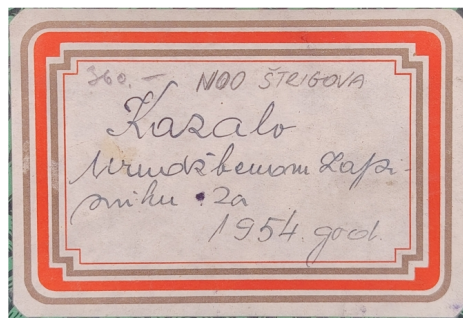 360.- NOO ŠTRIGOVA
Kazalo
Urudžbenom Zapi-
sniku za
1954. god.